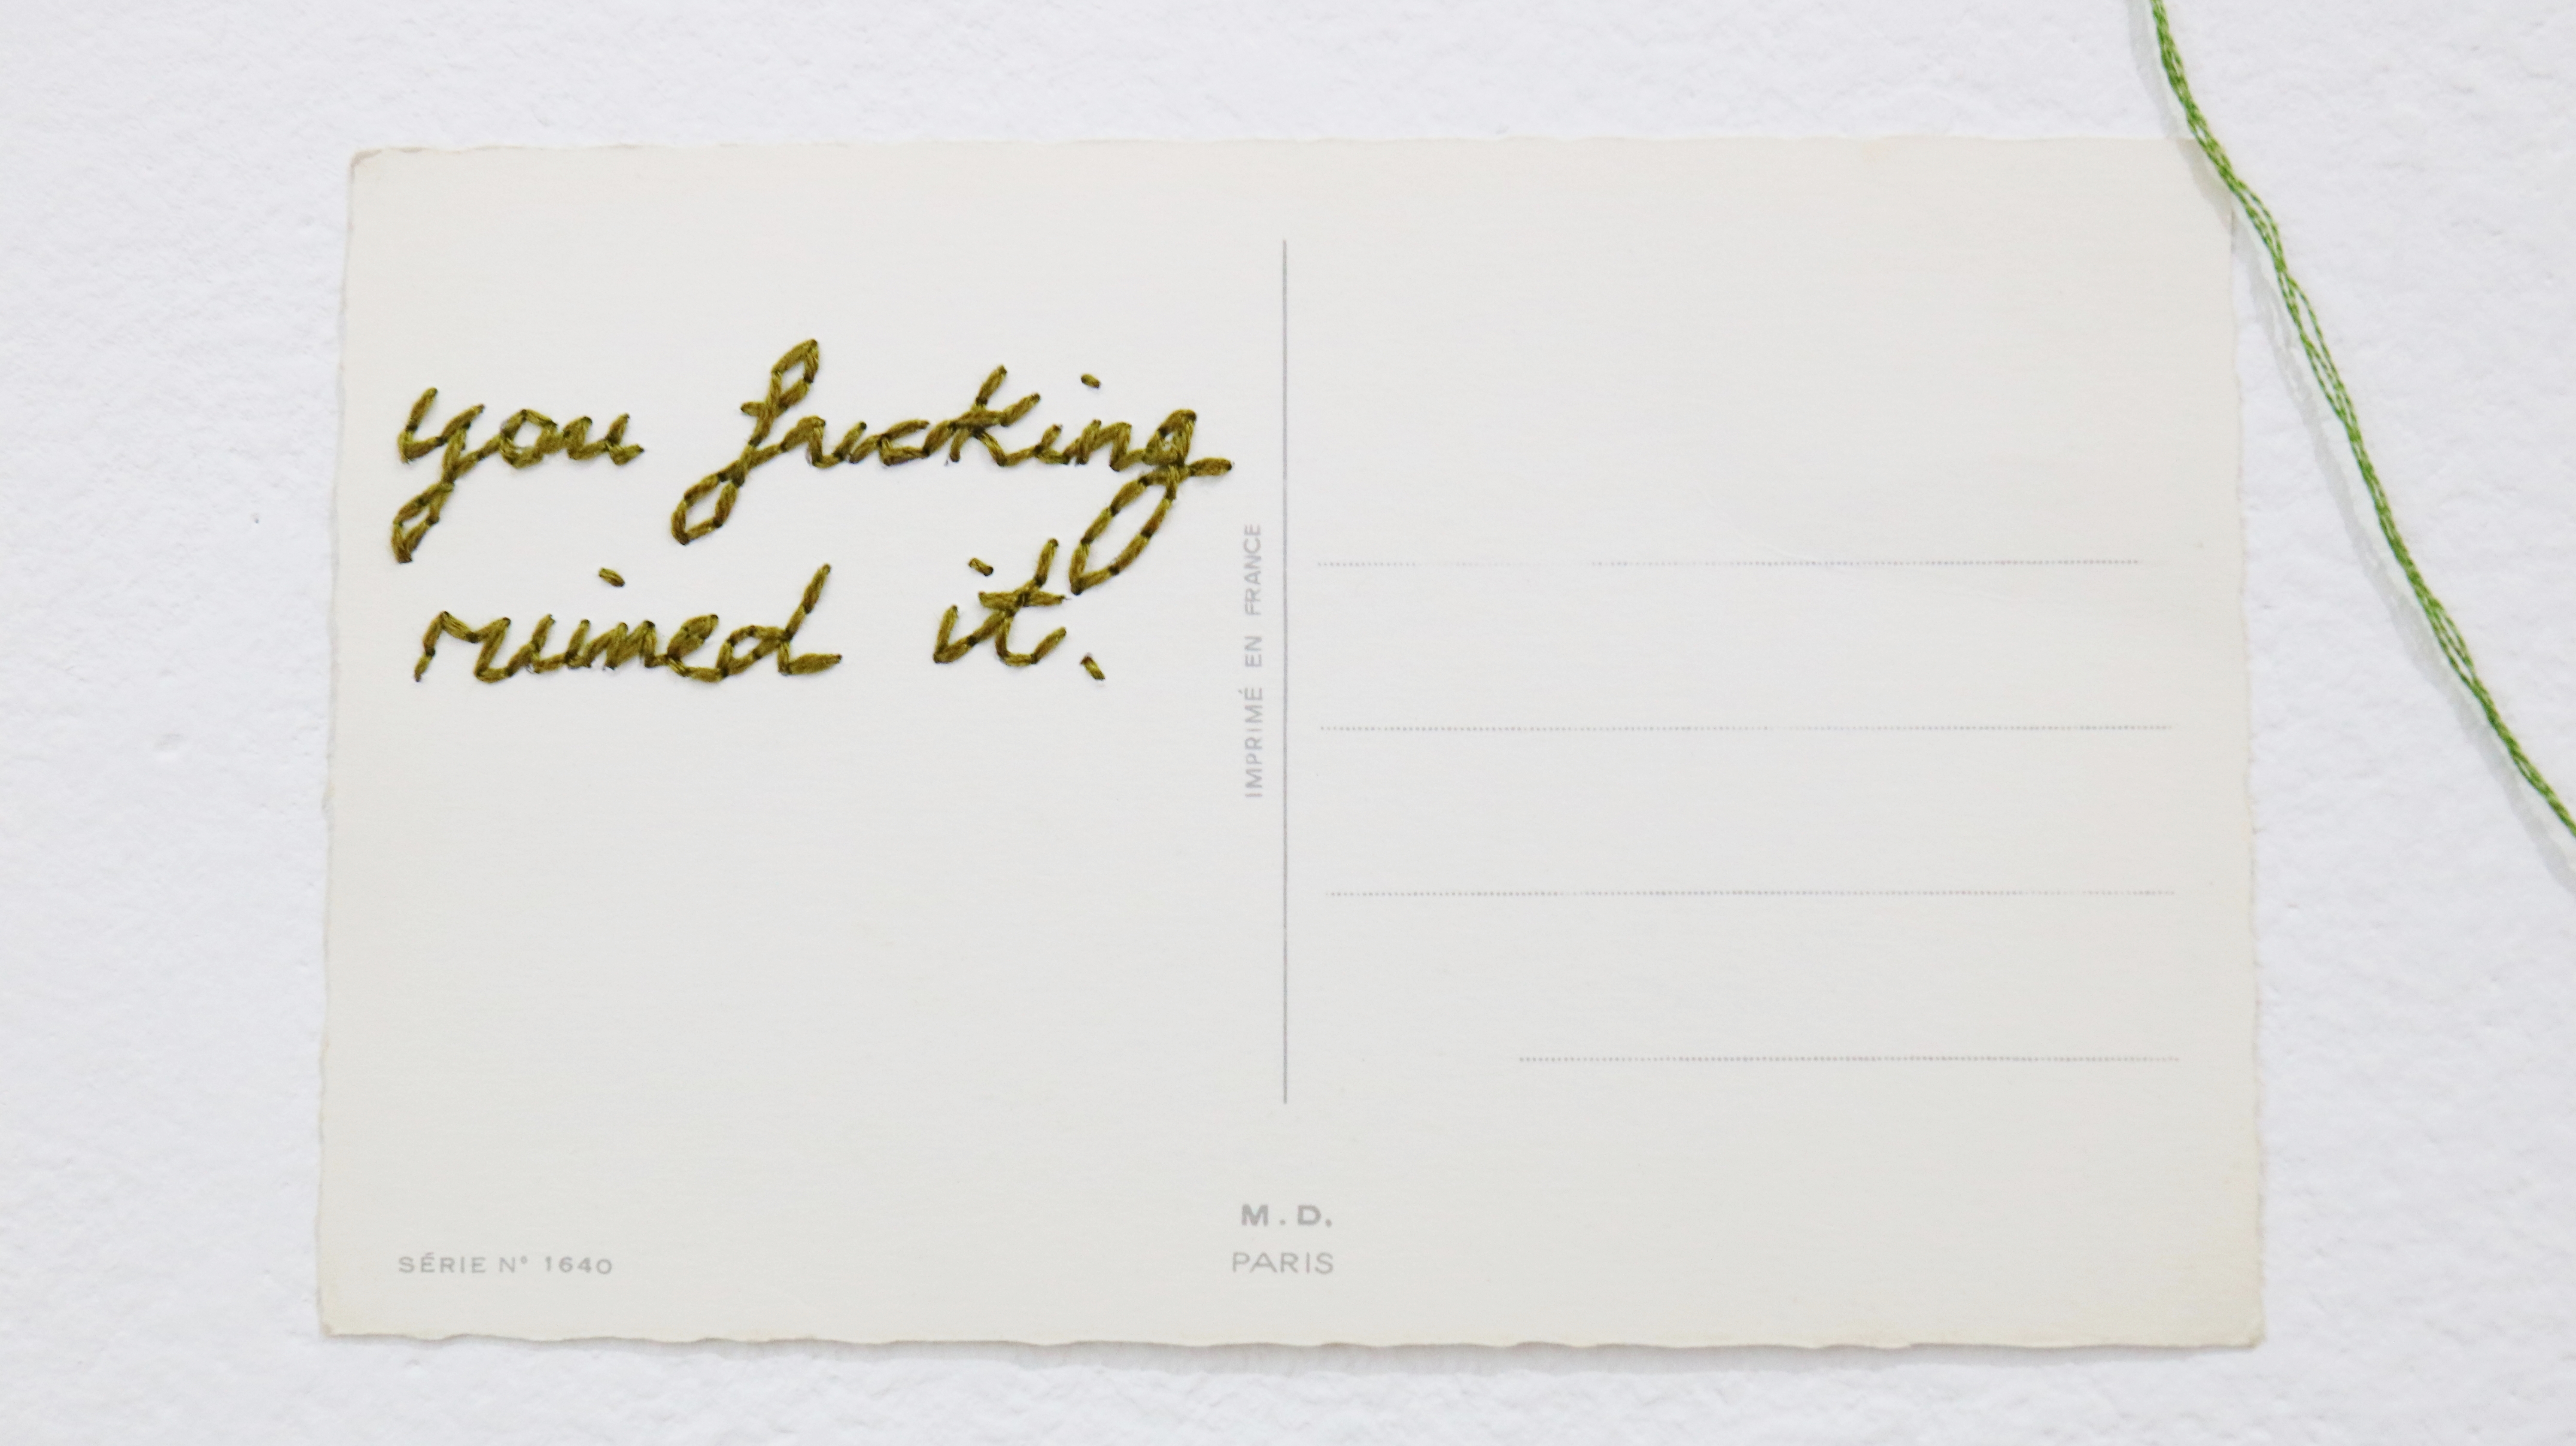 you fucking
ruined it.
IMPRIMÉ EN FRANCE
M.D.
PARIS
SÉRIE N° 1640